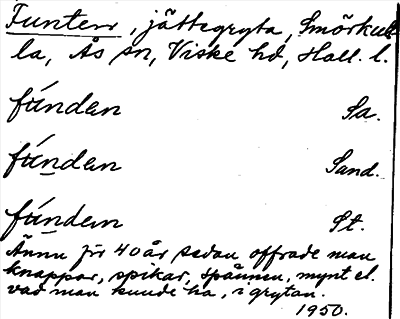 Funten, jättegryta, Smörkul
la, Ås sn, Viske hd, Hall. l.
fúnden Sa.
fúnden Sand.
fúndem St.
Ännu för 40 år sedan offrade man
knappar, spikar, spännen, mynt el.
vad man kunde ha, i grytan.
1950.